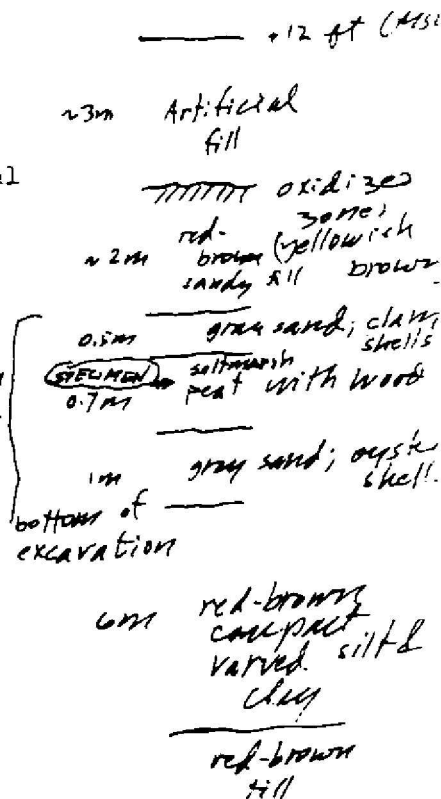 +12 ft (MSL
~3m Artificial
fill
oxidized
zone;
~2m red-
brown (yellowish
sandy fill brown
0.5m gray sand; clam
shells
SPECIMEN saltmarsh
0.7m peat with wood
1m gray sand; oyster
shell.
bottom of
excavation
6m red-brown
compact
varved silt &
clay
red-brown
till